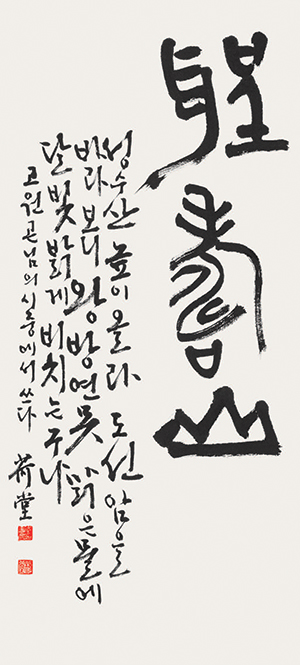 聖壽山
성수산 높이 올라 도선암을
바라보니 왕방연못 맑은물에
달빛 밝게 비치는구나
고원곤님의 시중에서 쓰다 荷堂